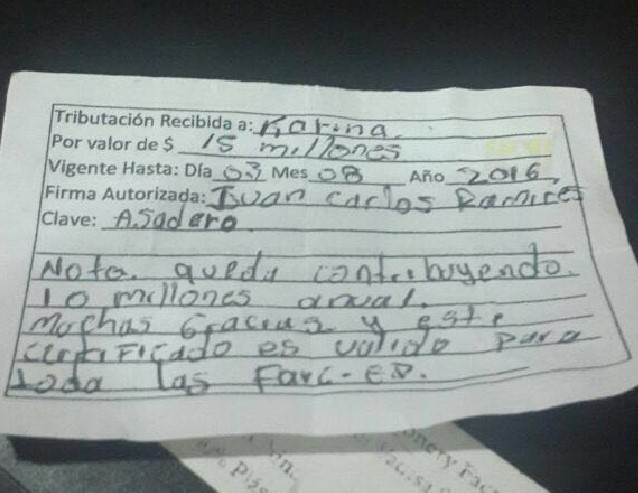 Tributación Recibida a: Karina.
Por valor de $ 15 millones
Vigente Hasta: Día 03 Mes 08 Año 2016,
Firma Autorizada: Ivan Carlos Ramires
Clave: Asadero
Nota. queda contribuyendo.
10 millones anual.
Muchas Gracias y este
certificado es valido para
toda las Farc-EP.